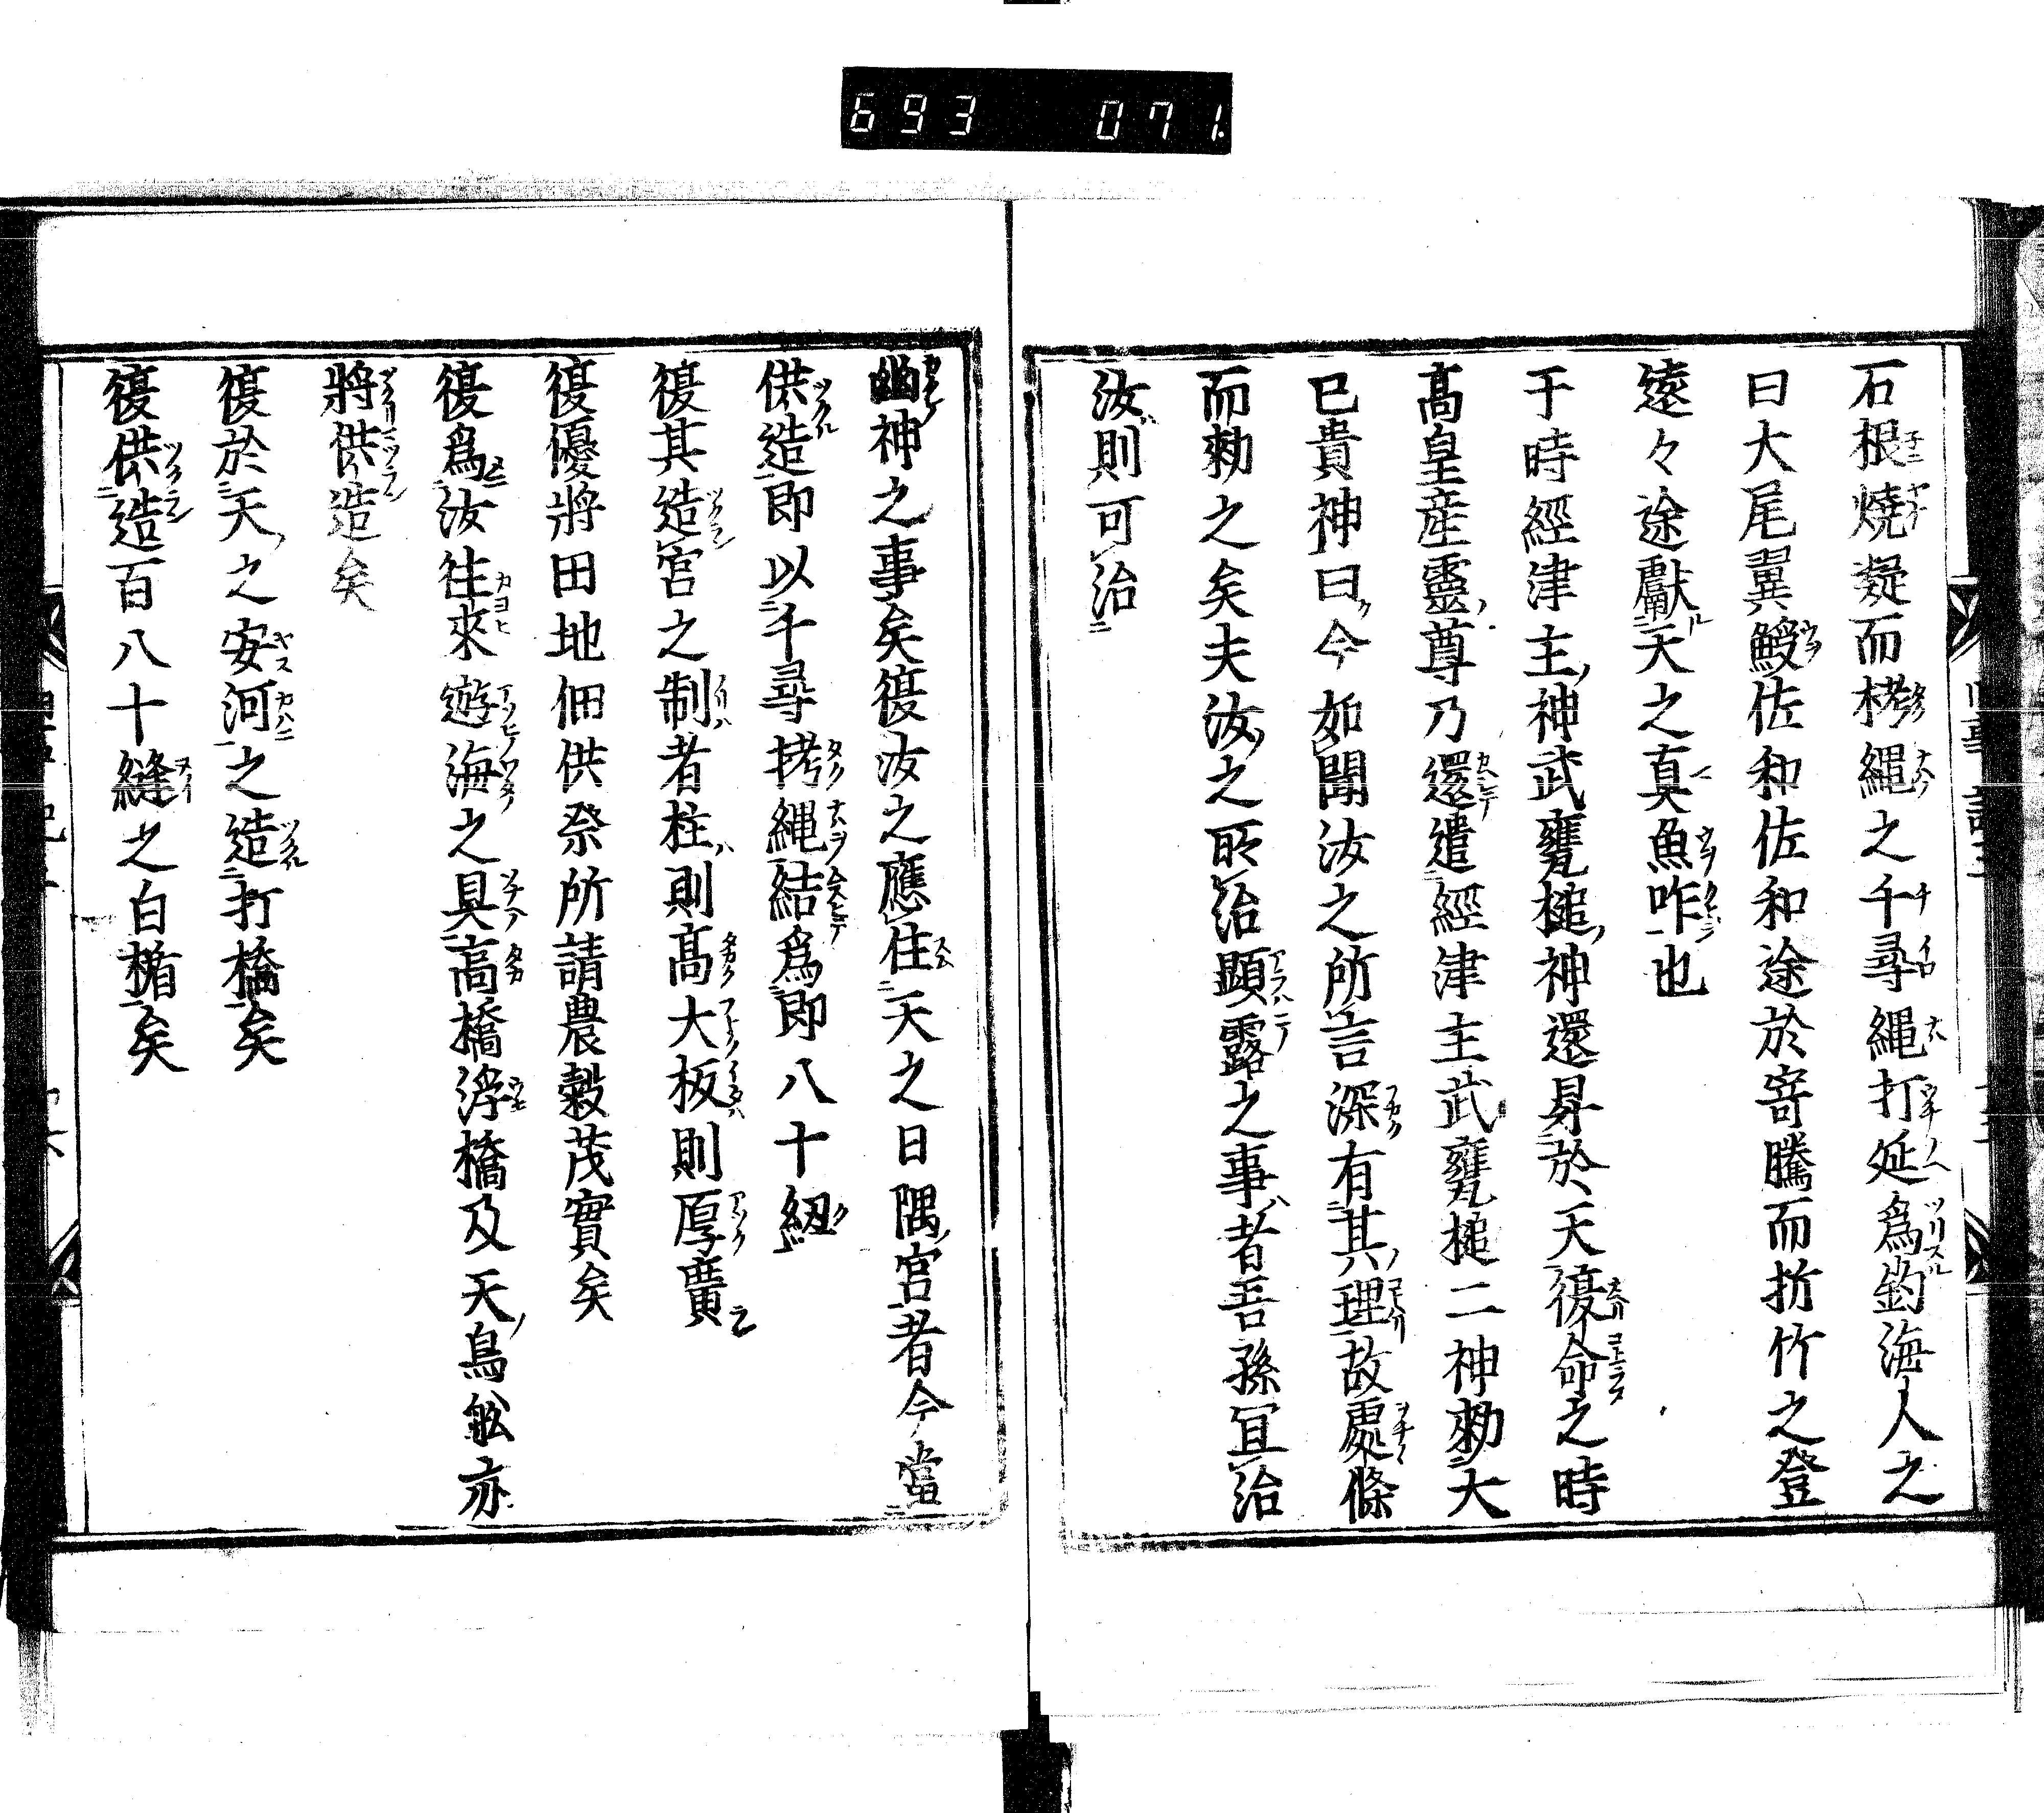 693 071.
石根燒凝而栲繩之千尋繩打延爲釣海人之
曰大尾翼鱸佐和佐和途於寄騰而折竹之登
遠々途獻天之真魚咋也
于時經津主神武甕槌神還昇於天復命之時
高皇産靈尊乃還遣經津主武甕槌二神勅大
已貴神曰今如聞汝之所言深有其理故處條
而勅之矣夫汝之所治顯露之事者吾孫宜治
汝則可治
幽神之事矣復汝之應住天之日隅宮者今當
供造即以千尋拷繩結爲即八十紉
復其造宮之制者柱則高大板則厚廣
復優將田地佃供祭所請農穀茂實矣
復爲汝往來遊海之具高橋浮橋及天鳥舩亦
將供造矣
復於天之安河之造打橋矣
復供造百八十縫之白楯矣